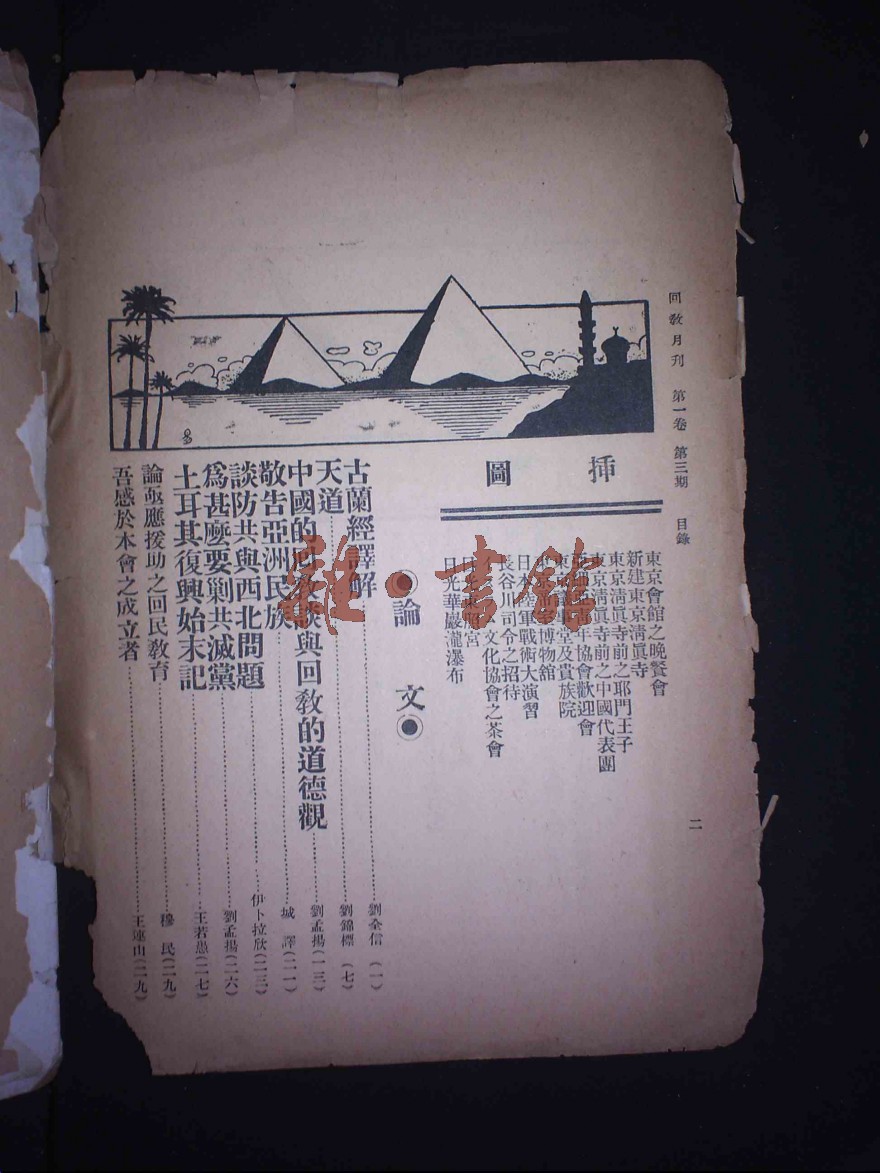 回敎月刊 第一卷 第三期 目錄
二
插圖
東京會館之晚餐會
新建東京淸眞寺
東京淸眞寺前之耶門王子
東京淸眞寺前之中國代表團
年協會歡迎會
東京 堂及貴族院
博物館
日本陸軍戰術大演習
長谷川司令之招待
文化協會之茶會
日光 宮
日光華嚴瀧瀑布
論文
古蘭經譯解 劉全信(一)
天道 劉錦標(七)
中國的回敎談與回敎的道德觀 劉孟揚(一三)
敬告亞洲民族 城譯(二一)
談防共與西北問題 伊卜拉欣(二三)
爲甚麽要剿共滅黨 劉孟揚(二六)
土耳其復興始末記 王若愚(二七)
論亟應援助之回民敎育 穆民(二九)
吾感於本會之成立者 王連山(二九)
雅·書館